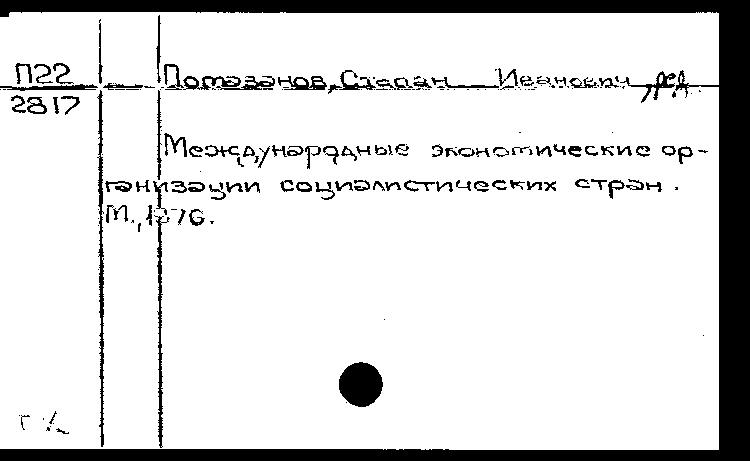 П22
2817
Потазанов, Степан Иванович, ред.
Международные экономические ор-
ганизации социалистических стран.
М., 1976.